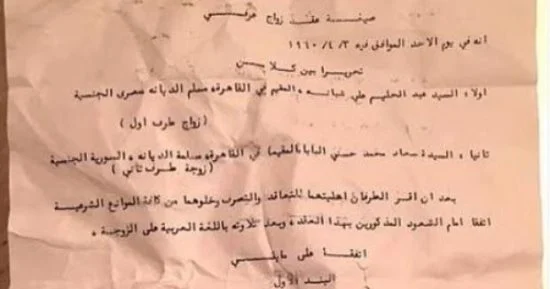 صيغة عقد زواج عرفي
انه في يوم الاحد الموافق فيه ٣/ ٤/ ١٩٦٠
تحريرا بين كلا من
اولا : السيد عبد الحليم علي شبانه ، المقيم في القاهرة مسلم الديانه مصرى الجنسية
( زواج طرف اول )
ثانيا : السيدة سعاد محمد حسني البابا (المقيمة) في القاهرة مسلمة الديانه ، السورية الجنسية
( زوجة طرف ثاني )
بعد ان اقر الطرفان اهليتهما للتعاقد والتصرف وخلوهما من كافة الموانع الشرعية
اتفقا امام الشهود المذكورين بهذا العقد ، وبعد تلاوته باللغة العربية على الزوجية ،
اتفقا على مايلي
البند الأول